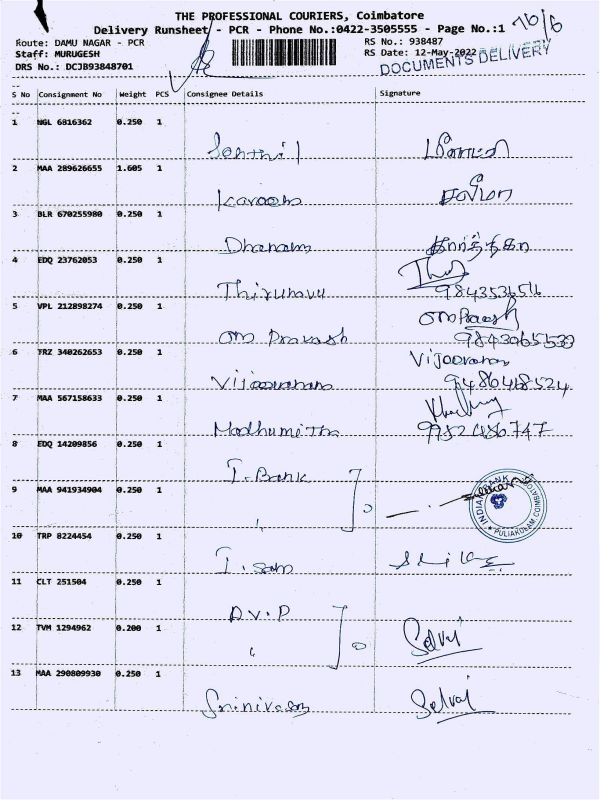 THE PROFESSIONAL COURIERS, Coimbatore
Delivery Runsheet - PCR - Phone No.:0422-3505555 - Page No.:1
76/6
Route: DAMU NAGAR - PCR
RS No.: 938487
Staff: MURUGESH
RS Date: 12-May-2022
DRS No.: DCJB93848701
DOCUMENTS DELIVERY
S No Consignment No Weight PCS Consignee Details Signature
1 NGL 6816362 0.250 1
Senthil
2 MAA 289626655 1.605 1
Kareem சலீமா
3 BLR 670255980 0.250 1
Dhanam கார்த்திகா
4 EDQ 23762053 0.250 1
Thirunavu 9843536516
5 VPL 212898274 0.250 1 OM Prakash
OM Prakash 9843065533
6 TRZ 340262653 0.250 1 Vijayaraham
Vijayaraham 9486468524
7 MAA 567158633 0.250 1
Madhumitha 9952486747
8 EDQ 14209856 0.250 1
I. Bank
9 MAA 941934904 0.250 1
"
INDIAN BANK
PULIAKULAM, COIMBATORE
10 TRP 8224454 0.250 1
T. Sam
11 CLT 251504 0.250 1
D.V.P
12 TVM 1294962 0.200 1
" Selvi
13 MAA 290809930 0.250 1
Srinivasan Selvi